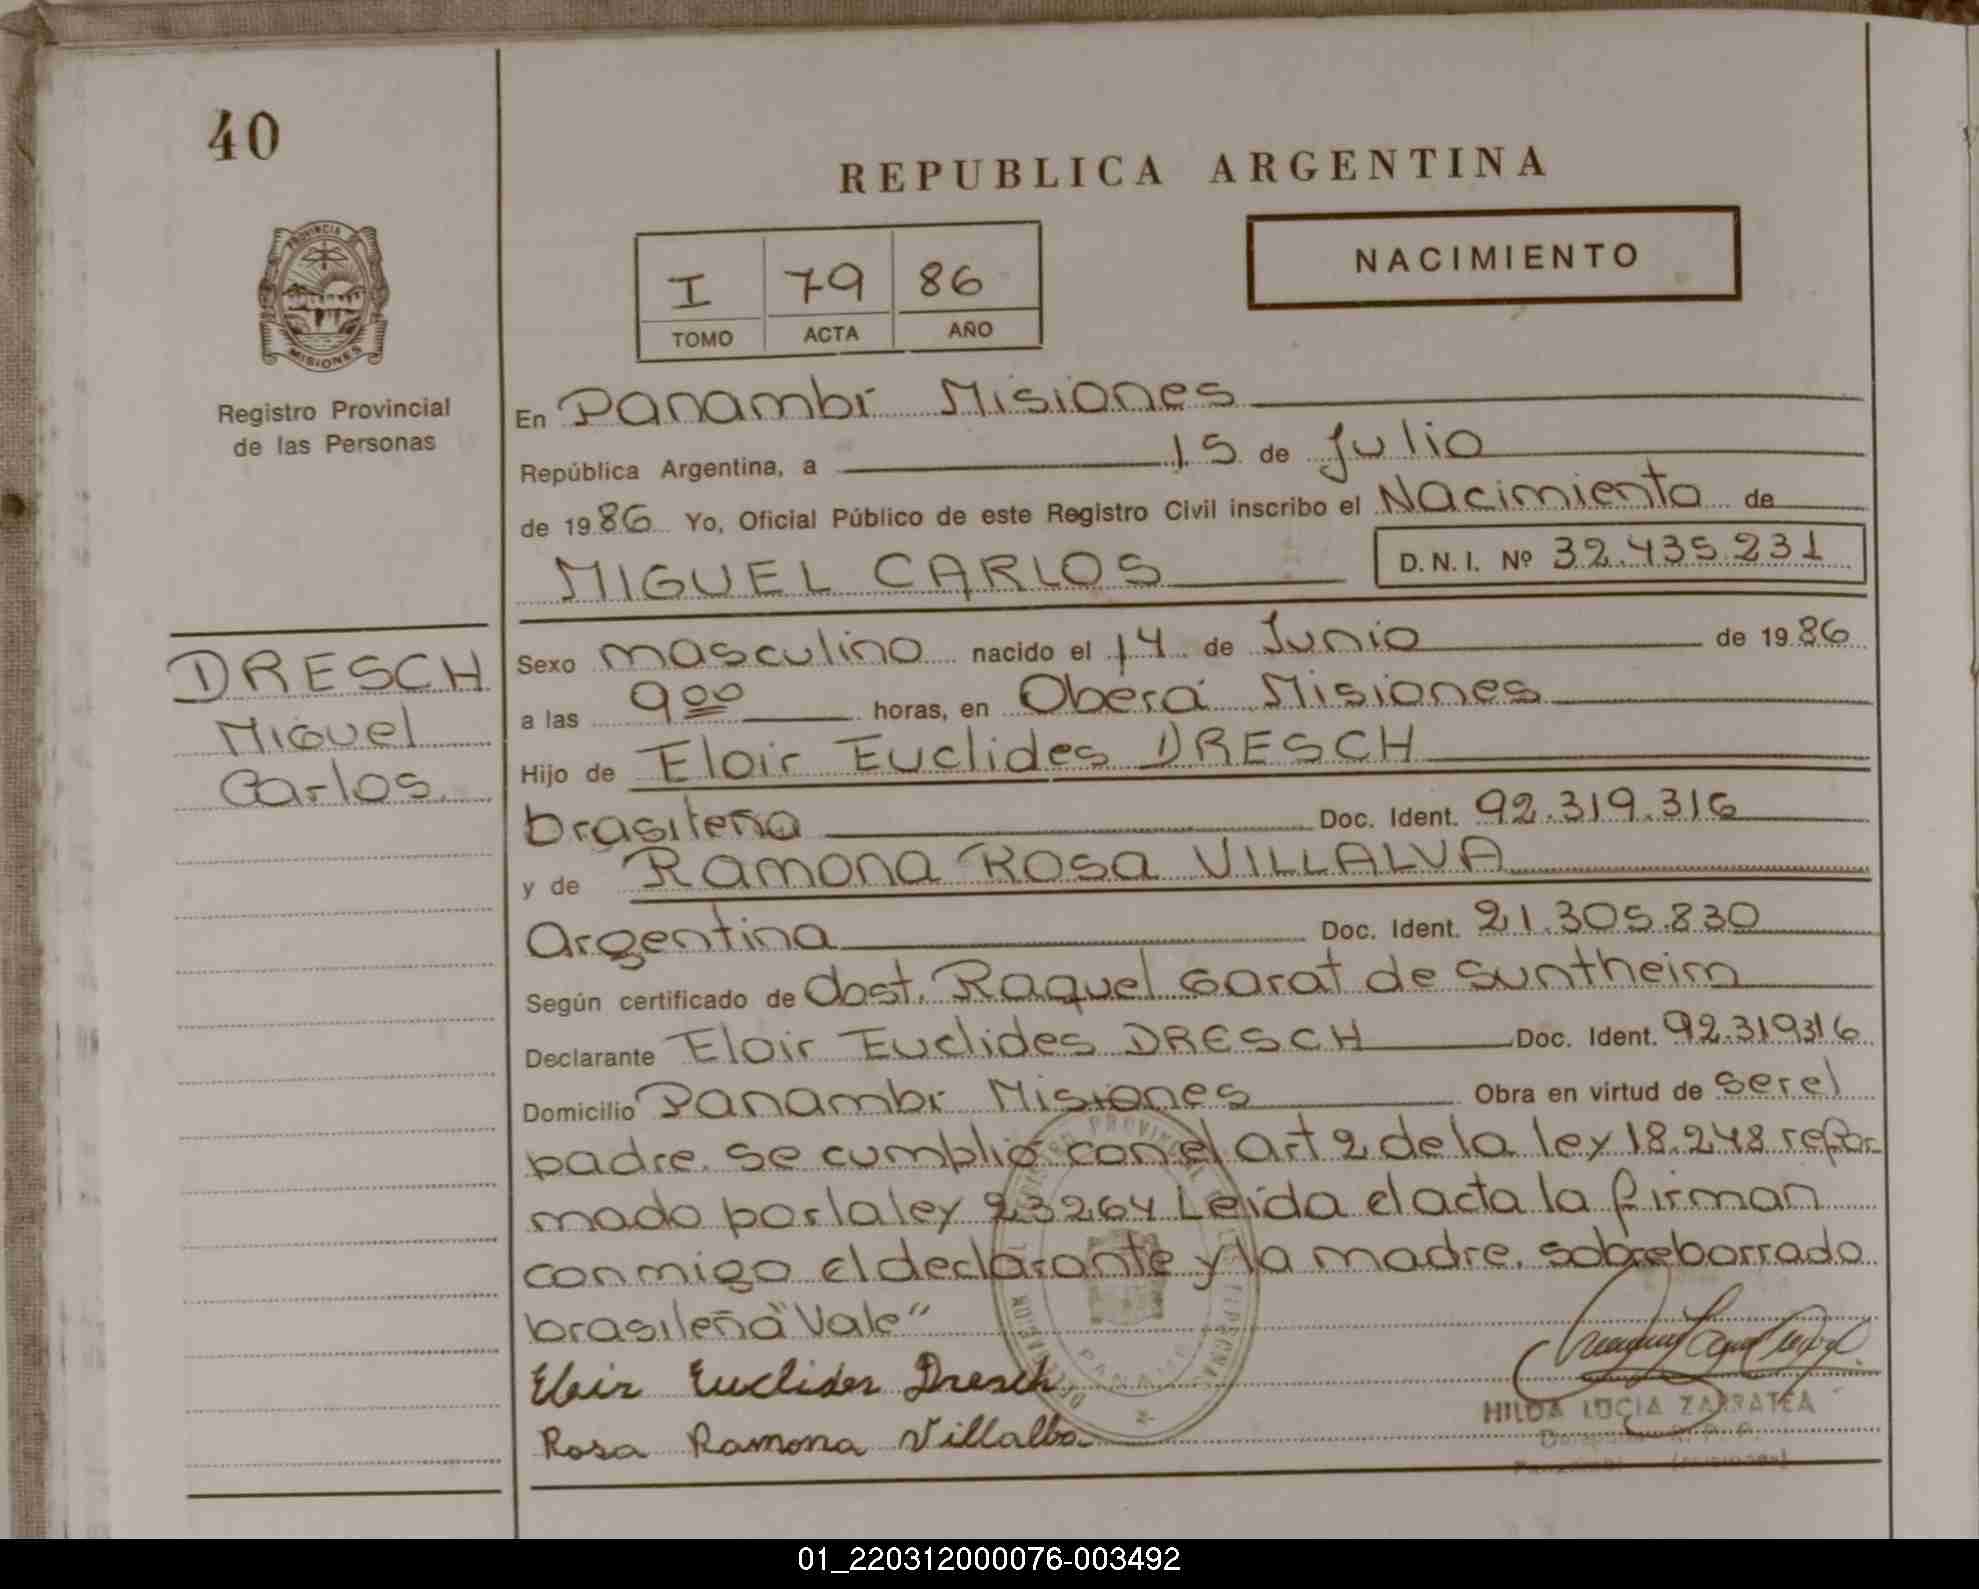 40
REPUBLICA ARGENTINA
PROVINCIA DE
MISIONES
Registro Provincial
de las Personas
I 79 86
TOMO ACTA AÑO
NACIMIENTO
En Panambí Misiones
República Argentina, a 15 de Julio
de 1986 Yo, Oficial Público de este Registro Civil inscribo el Nacimiento de
MIGUEL CARLOS D.N.I. Nº 32.435.231
DRESCH
Miguel
Carlos.
Sexo masculino nacido el 14 de Junio de 1986
a las 9 00 horas, en Oberá Misiones
Hijo de Eloir Euclides DRESCH
brasileña Doc. Ident. 92.319.316
y de Ramona Rosa VILLALVA
Argentina Doc. Ident. 21.305.830
Según certificado de Obst. Raquel Garat de Suntheim
Declarante Eloir Euclides DRESCH Doc. Ident. 92.319316
Domicilio Panambi Misiones Obra en virtud de ser el
padre. se cumplió con el art 2 de la ley 18.248 refor
mado por la ley 23264 Leída el acta la firman
conmigo el declarante y la madre. sobreborrado
brasileña "Vale"
Eloir Euclides Dresch
Rosa Ramona Villalba
HILDA LUCIA ZARRATEA
01_220312000076-003492